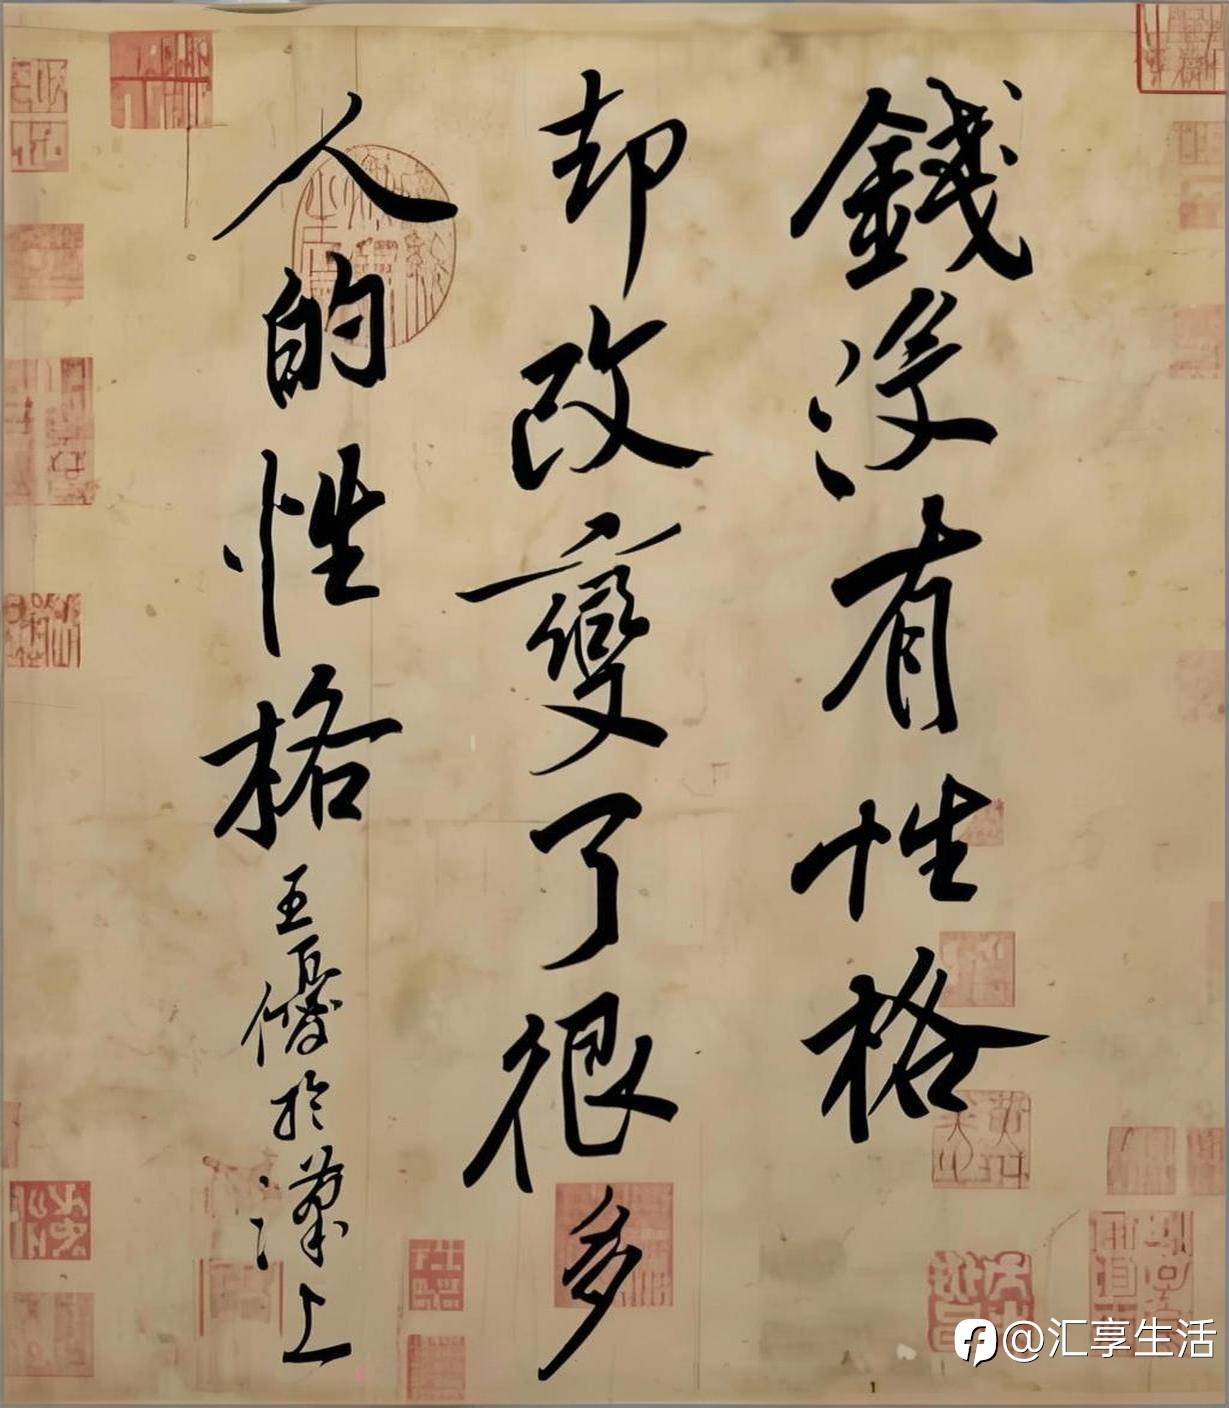 錢没有性格
却改變了很多
人的性格
王優於漢上
@汇享生活